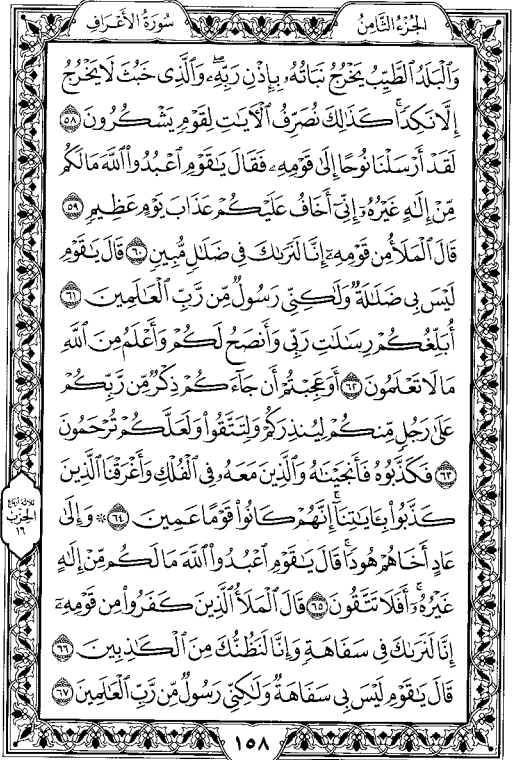 الجزء الثامن
سورة الأعراف
وَالْبَلَدُ الطَّيِّبُ يَخْرُجُ نَبَاتُهُ بِإِذْنِ رَبِّهِ وَالَّذِي خَبُثَ لَا يَخْرُجُ
إِلَّا نَكِدًا كَذَٰلِكَ نُصَرِّفُ الْآيَاتِ لِقَوْمٍ يَشْكُرُونَ ٥٨
لَقَدْ أَرْسَلْنَا نُوحًا إِلَىٰ قَوْمِهِ فَقَالَ يَاقَوْمِ اعْبُدُوا اللَّهَ مَا لَكُم
مِّنْ إِلَٰهٍ غَيْرُهُ إِنِّي أَخَافُ عَلَيْكُمْ عَذَابَ يَوْمٍ عَظِيمٍ ٥٩
قَالَ الْمَلَأُ مِن قَوْمِهِ إِنَّا لَنَرَاكَ فِي ضَلَالٍ مُّبِينٍ ٦٠ قَالَ يَاقَوْمِ
لَيْسَ بِي ضَلَالَةٌ وَلَٰكِنِّي رَسُولٌ مِّن رَّبِّ الْعَالَمِينَ ٦١
أُبَلِّغُكُمْ رِسَالَاتِ رَبِّي وَأَنصَحُ لَكُمْ وَأَعْلَمُ مِنَ اللَّهِ
مَا لَا تَعْلَمُونَ ٦٢ أَوَعَجِبْتُمْ أَن جَاءَكُمْ ذِكْرٌ مِّن رَّبِّكُمْ
عَلَىٰ رَجُلٍ مِّنكُمْ لِيُنذِرَكُمْ وَلِتَتَّقُوا وَلَعَلَّكُمْ تُرْحَمُونَ
٦٣ فَكَذَّبُوهُ فَأَنجَيْنَاهُ وَالَّذِينَ مَعَهُ فِي الْفُلْكِ وَأَغْرَقْنَا الَّذِينَ
كَذَّبُوا بِآيَاتِنَا إِنَّهُمْ كَانُوا قَوْمًا عَمِينَ ٦٤ ۞ وَإِلَىٰ
عَادٍ أَخَاهُمْ هُودًا قَالَ يَاقَوْمِ اعْبُدُوا اللَّهَ مَا لَكُم مِّنْ إِلَٰهٍ
غَيْرُهُ أَفَلَا تَتَّقُونَ ٦٥ قَالَ الْمَلَأُ الَّذِينَ كَفَرُوا مِن قَوْمِهِ
إِنَّا لَنَرَاكَ فِي سَفَاهَةٍ وَإِنَّا لَنَظُنُّكَ مِنَ الْكَاذِبِينَ ٦٦
قَالَ يَاقَوْمِ لَيْسَ بِي سَفَاهَةٌ وَلَٰكِنِّي رَسُولٌ مِّن رَّبِّ الْعَالَمِينَ ٦٧
ثلاثة أرباع
الحزب
١٦
١٥٨